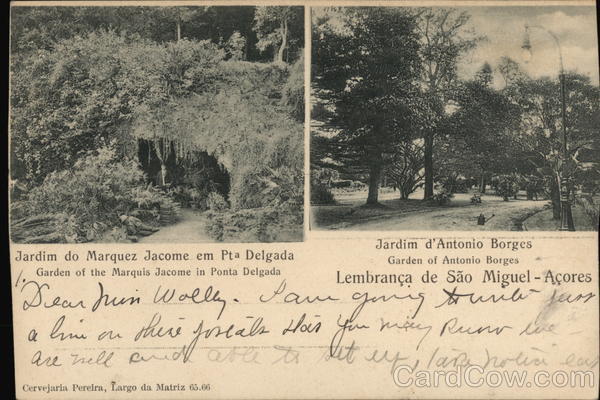 Jardim do Marquez Jacome em Pta Delgada
Garden of the Marquis Jacome in Ponta Delgada
Jardim d'Antonio Borges
Garden of Antonio Borges
Lembrança de São Miguel-Açores
1. Dear Miss Wolley. I am going to write just
a line on these postals that you may know we
are well and able to set up,
Cervejaria Pereira, Largo da Matriz 65.66
CardCow.com